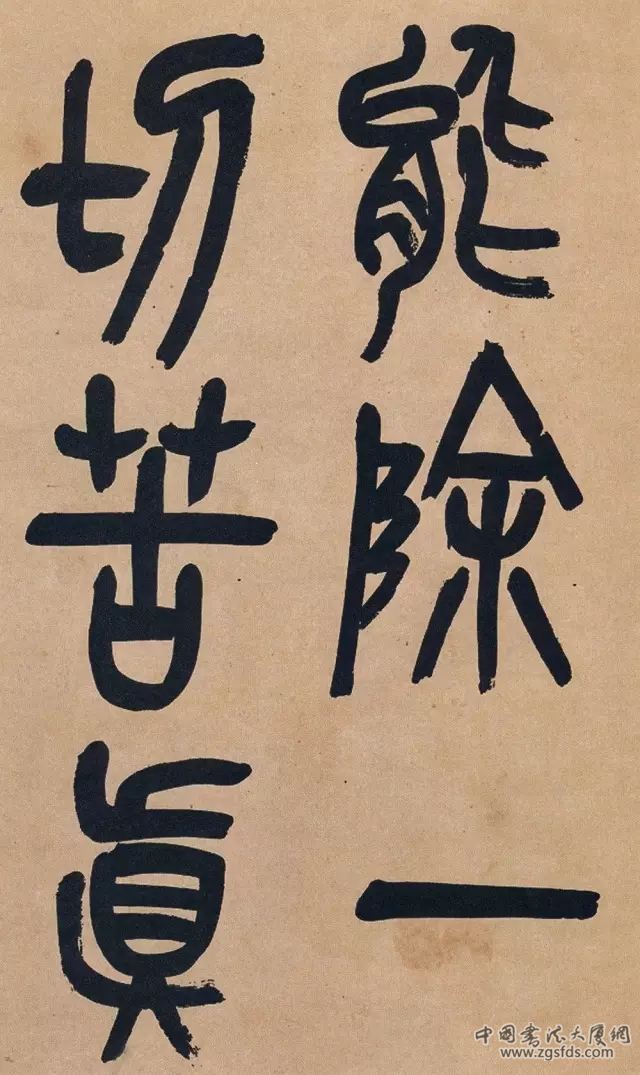 能除一
切苦真
中国书法大厦網
www.zgsfds.com